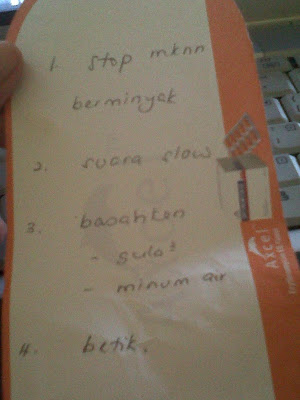 1. stop mknn
berminyak
2. suara slow
3. basahkan
- gula²
- minum air
4. betik.
Axcel